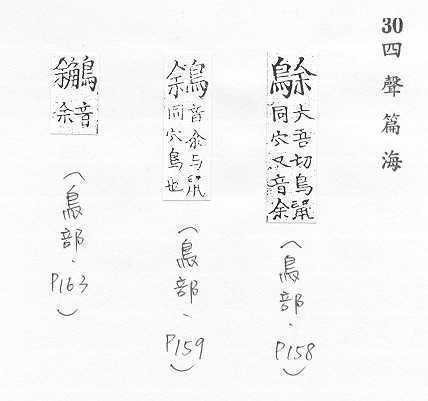 30 四聲篇海
大吾切鳥鼠
同穴又音余
(鳥部.P158)
鵌
音余与鼠
同穴鳥也
(鳥部.P159)
音
余
(鳥部.P163)